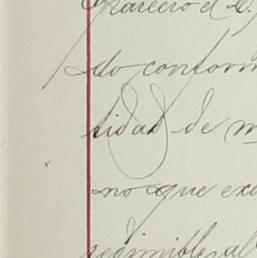 do conform
tidad de m
no que exa
redimible al